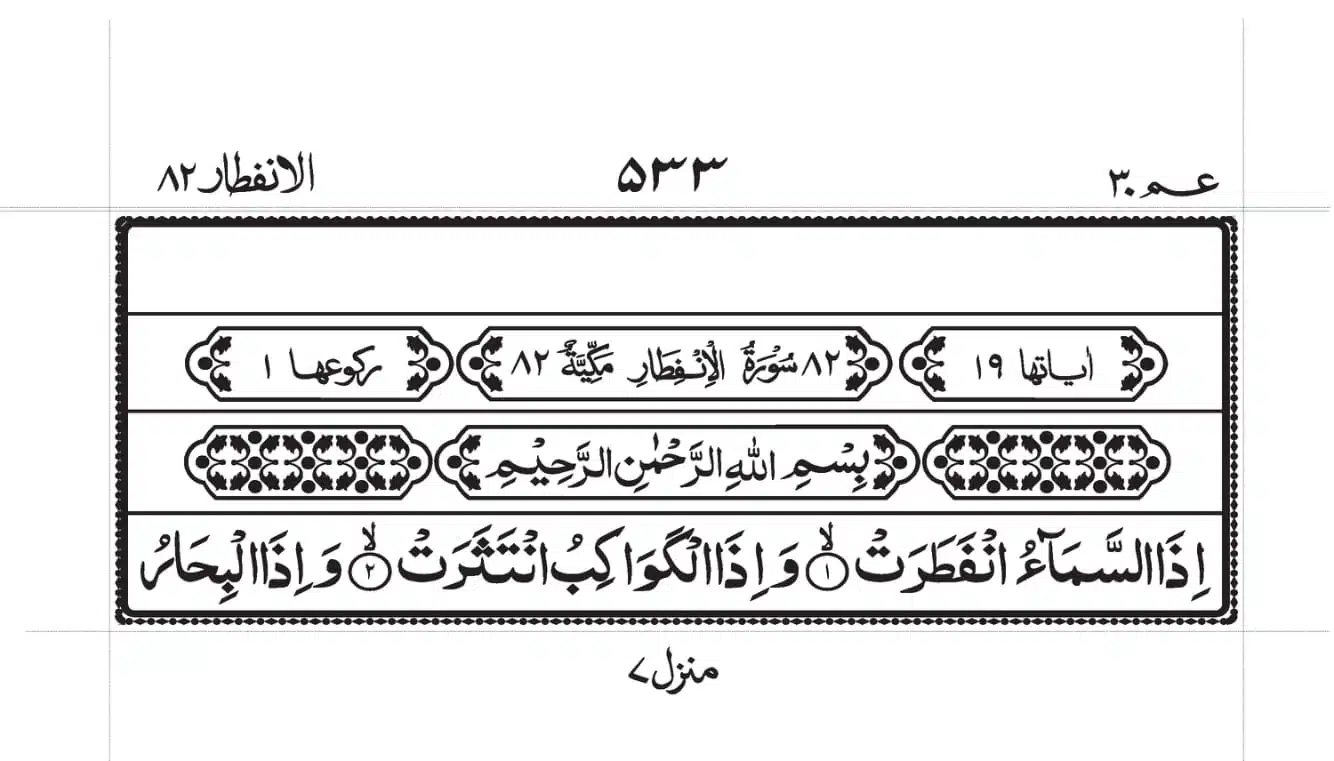 عم ۳۰ ۵۳۳ الانفطار ۸۲
اٰیاتها ۱۹ ۸۲ سُوْرَةُ الْاِنْفِطَارِ مَكِّیَّةٌ ۸۲ رکوعها ۱
بِسْمِ اللهِ الرَّحْمٰنِ الرَّحِیْمِ
اِذَا السَّمَآءُ انْفَطَرَتْ ۙ‏﴿۱﴾ وَاِذَا الْكَوَاكِبُ انْتَثَرَتْ ۙ‏﴿۲﴾ وَاِذَا الْبِحَارُ
منزل ۷